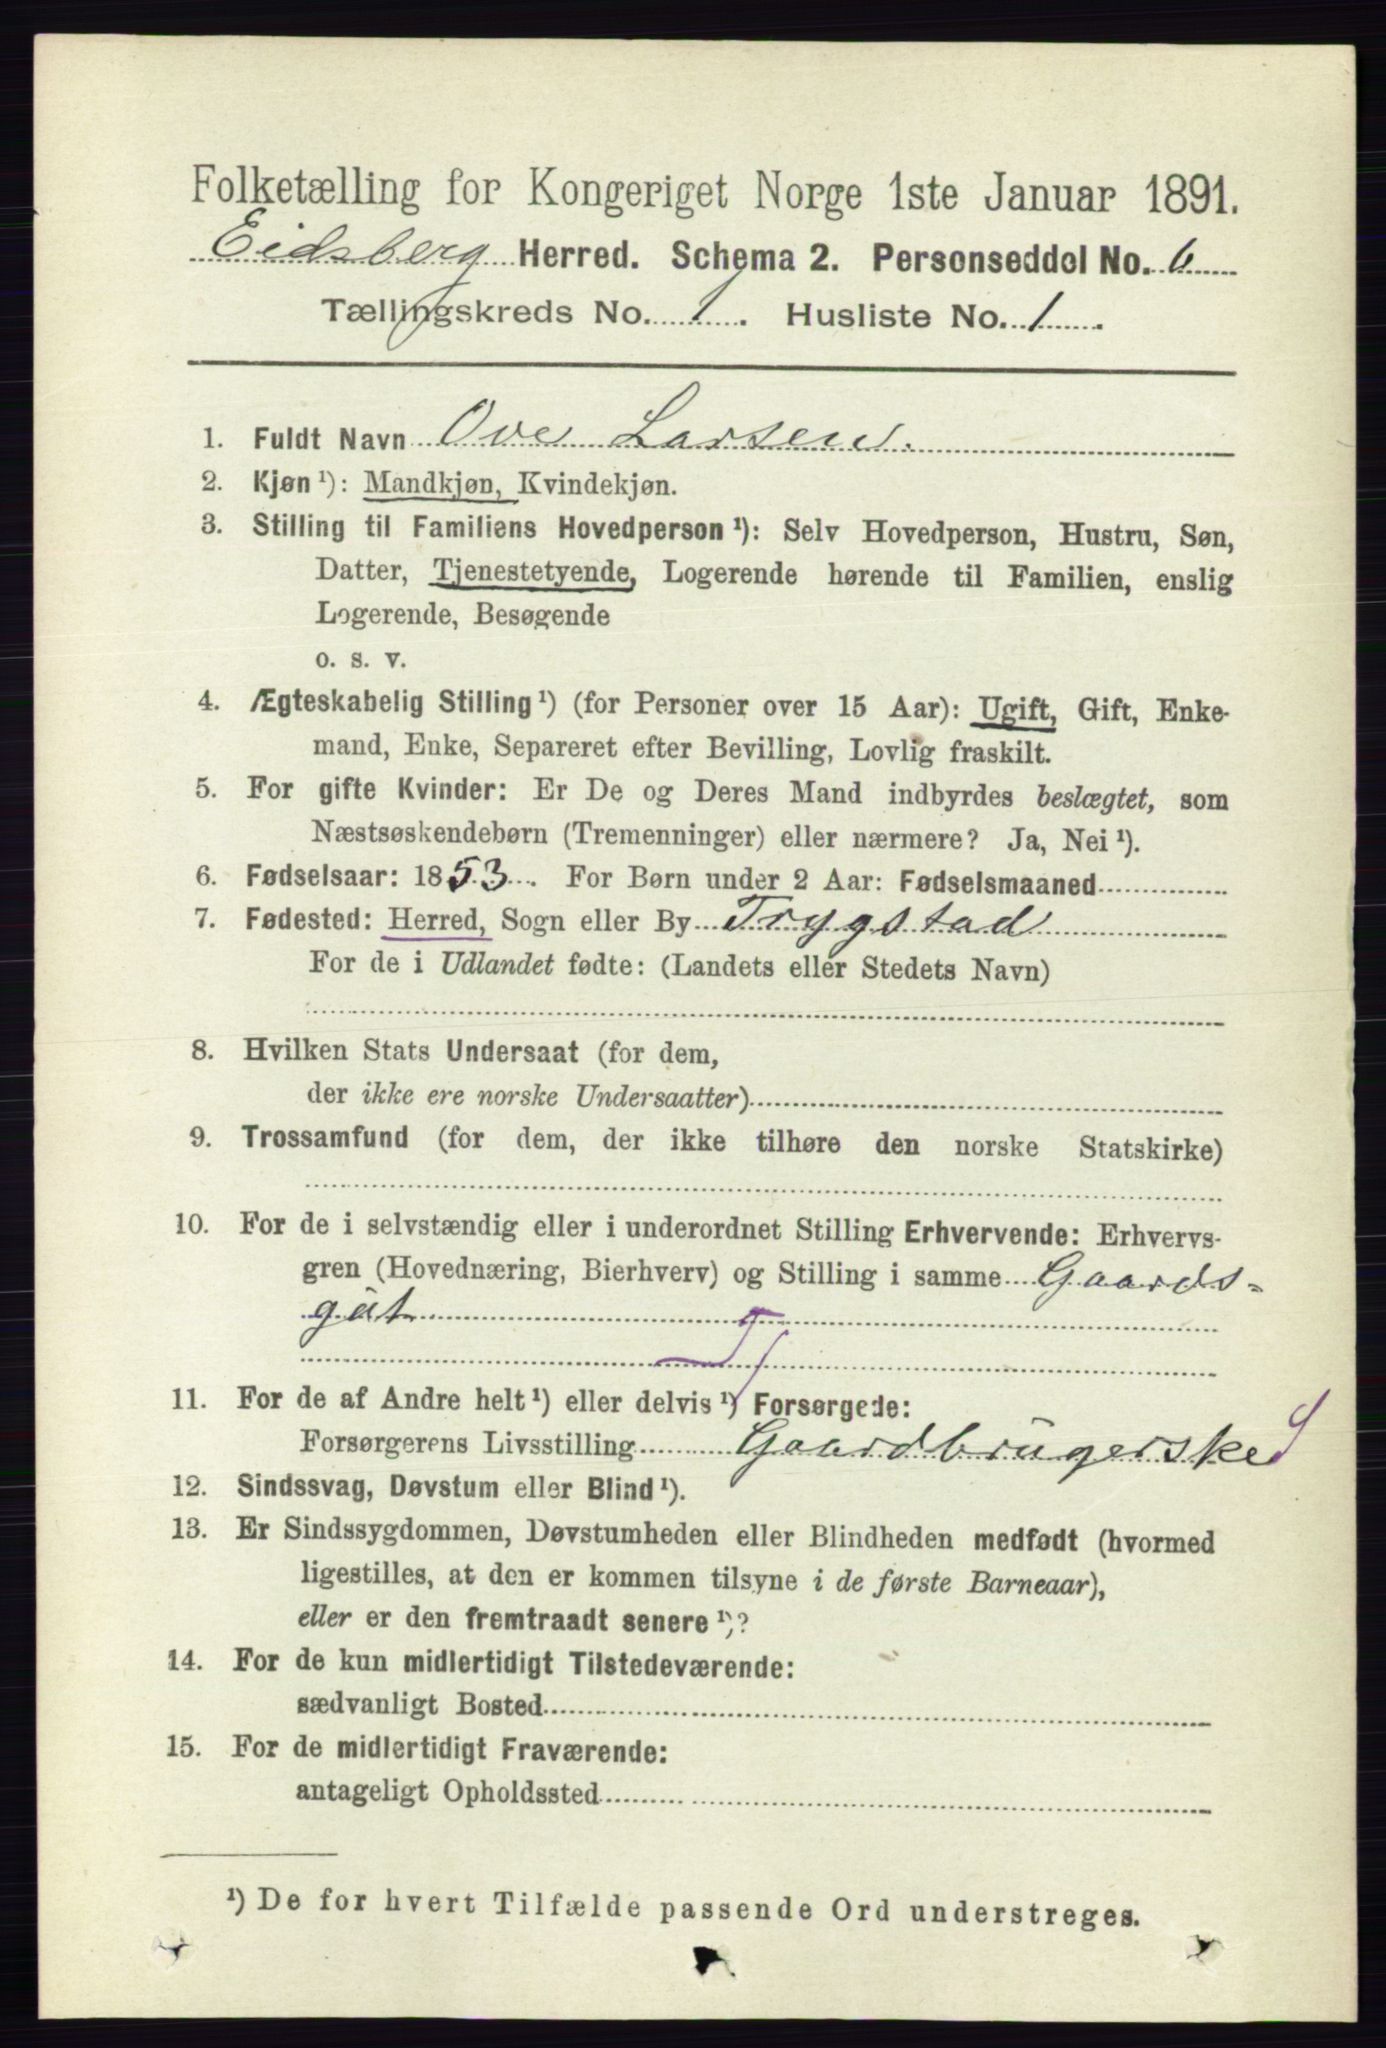 Folketælling for Kongeriget Norge 1ste Januar 1891.
Eidsberg Herred. Schema 2. Personseddel No. 6
Tællingskreds No. 1. Husliste No. 1.
1. Fuldt Navn Ove Larsen.
2. Kjøn ¹): Mandkjøn, Kvindekjøn.
3. Stilling til Familiens Hovedperson ¹): Selv Hovedperson, Hustru, Søn,
Datter, Tjenestetyende, Logerende hørende til Familien, enslig
Logerende, Besøgende
o. s. v.
4. Ægteskabelig Stilling ¹) (for Personer over 15 Aar): Ugift, Gift, Enke-
mand, Enke, Separeret efter Bevilling, Lovlig fraskilt.
5. For gifte Kvinder: Er De og Deres Mand indbyrdes beslægtet, som
Næstsøskendebørn (Tremenninger) eller nærmere? Ja, Nei ¹).
6. Fødselsaar: 1853. For Børn under 2 Aar: Fødselsmaaned
7. Fødested: Herred, Sogn eller By Trygstad
For de i Udlandet fødte: (Landets eller Stedets Navn)
8. Hvilken Stats Undersaat (for dem,
der ikke ere norske Undersaatter)
9. Trossamfund (for dem, der ikke tilhøre den norske Statskirke)
10. For de i selvstændig eller i underordnet Stilling Erhvervende: Erhvervs-
gren (Hovednæring, Bierhverv) og Stilling i samme Gaards-
gut
11. For de af Andre helt ¹) eller delvis ¹) Forsørgede:
Forsørgerens Livsstilling Gaardbrugerske
12. Sindssvag, Døvstum eller Blind ¹).
13. Er Sindssygdommen, Døvstumheden eller Blindheden medfødt (hvormed
ligestilles, at den er kommen tilsyne i de første Barneaar),
eller er den fremtraadt senere ¹)?
14. For de kun midlertidigt Tilstedeværende:
sædvanligt Bosted
15. For de midlertidigt Fraværende:
antageligt Opholdssted
¹) De for hvert Tilfælde passende Ord understreges.